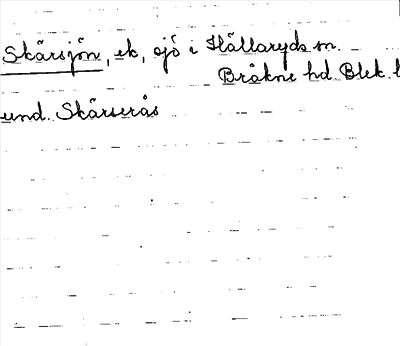 Skärsjön, ek, sjö i Hällaryds sn.
Bräkne hd. Blek. l
und. Skärserås